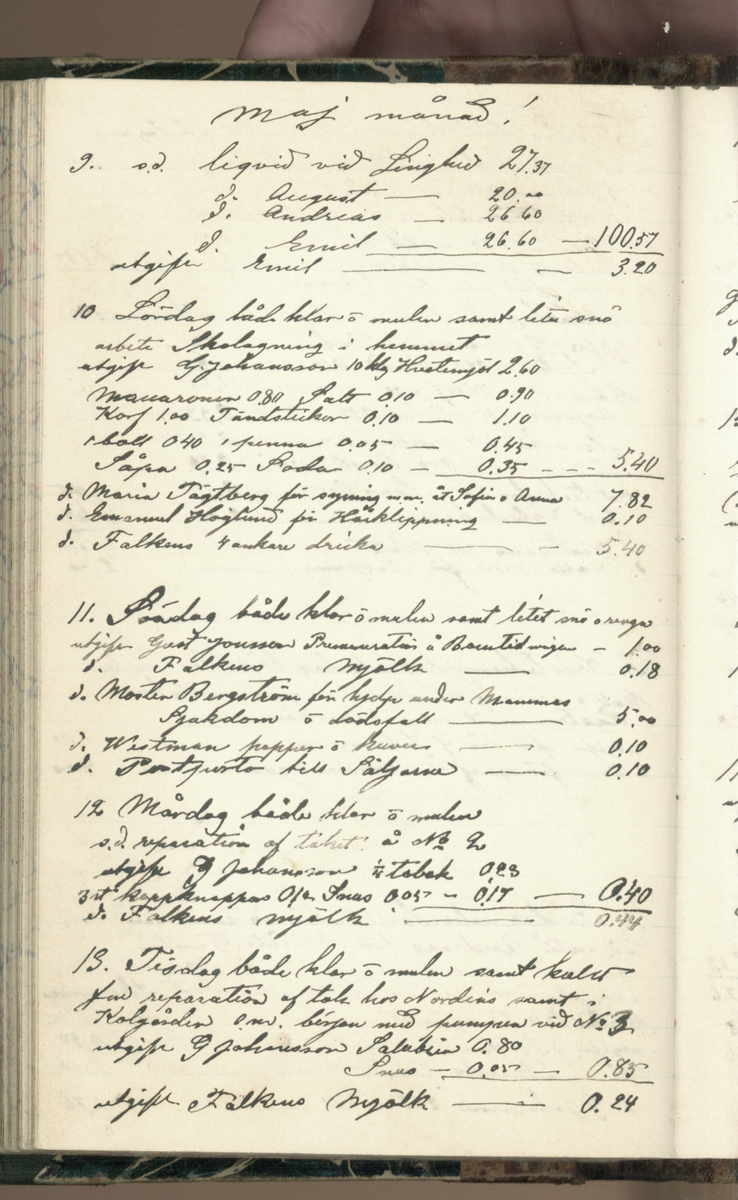 Maj månad!
9. s.d. liqvid vid Linghed 27.37
d. August — 20.00
d. Andreas — 26.60
d. Emil — 26.60 — 100.57
utgift Emil — — 3.20
10 Lördag både klar o mulen samt litet snö
arbete Skolagning i hemmet
utgift G. Johansson 10 kg Hvetemjöl 2.60
Maccaroner 0.80 Salt 0.10 — 0.90
Korf 1.00 Tändstickor 0.10 — 1.10
1 boll 0.40 1 penna 0.05 — 0.45
Såpa 0.25 Soda 0.10 — 0.35 - - - 5.40
d. Maria Tägtberg för syning m.m. åt Sofia o Anna 7.82
d. Emanuel Höglund för Hårklippning — 0.10
d. Falkens 4 ankare dricka — - 5.40
11. Söndag både klar o mulen samt litet snö o regn
utgift Gust Jonsson Prenumration å Barntidningen - 1.00
d. Falkens Mjölk — 0.18
d. Moster Bergström för hjelp under Mammas
Sjukdom o dödsfall — 5.00
d. Westman papper o kuver — 0.10
d. Postporto till Säljarne — 0.10
12 Måndag både klar o mulen
s.d. reparation af taket å No 2
utgift G Johansson 1/4 tobak 0.23
3 st kragknappar 0.12 Snus 0.05 - 0.17 — 0.40
d. Falkens mjölk — 0.44
13. Tisdag både klar o mulen samt kallt
for reparation af tak hos Nordins samt i
Kolgården o.m. början med pumpen vid No 3
utgift G Johansson 0.80
Snus - 0.05 — 0.85
utgift Falkens Mjölk — 0.24